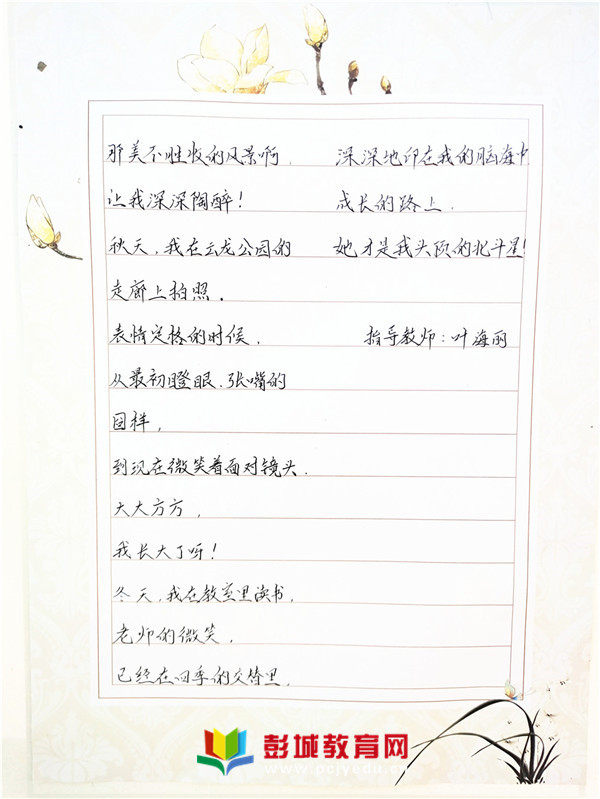 那美不胜收的风景啊，
让我深深陶醉！
秋天，我在云龙公园的
走廊上拍照，
表情定格的时候，
从最初瞪眼、张嘴的
囧样，
到现在微笑着面对镜头，
大大方方，
我长大了呀！
冬天，我在教室里读书，
老师的微笑，
已经在四季的交替里，
深深地印在我的脑海中
成长的路上，
她才是我头顶的北斗星！
指导教师：叶海丽
彭城教育网
www.pcjyedu.cn